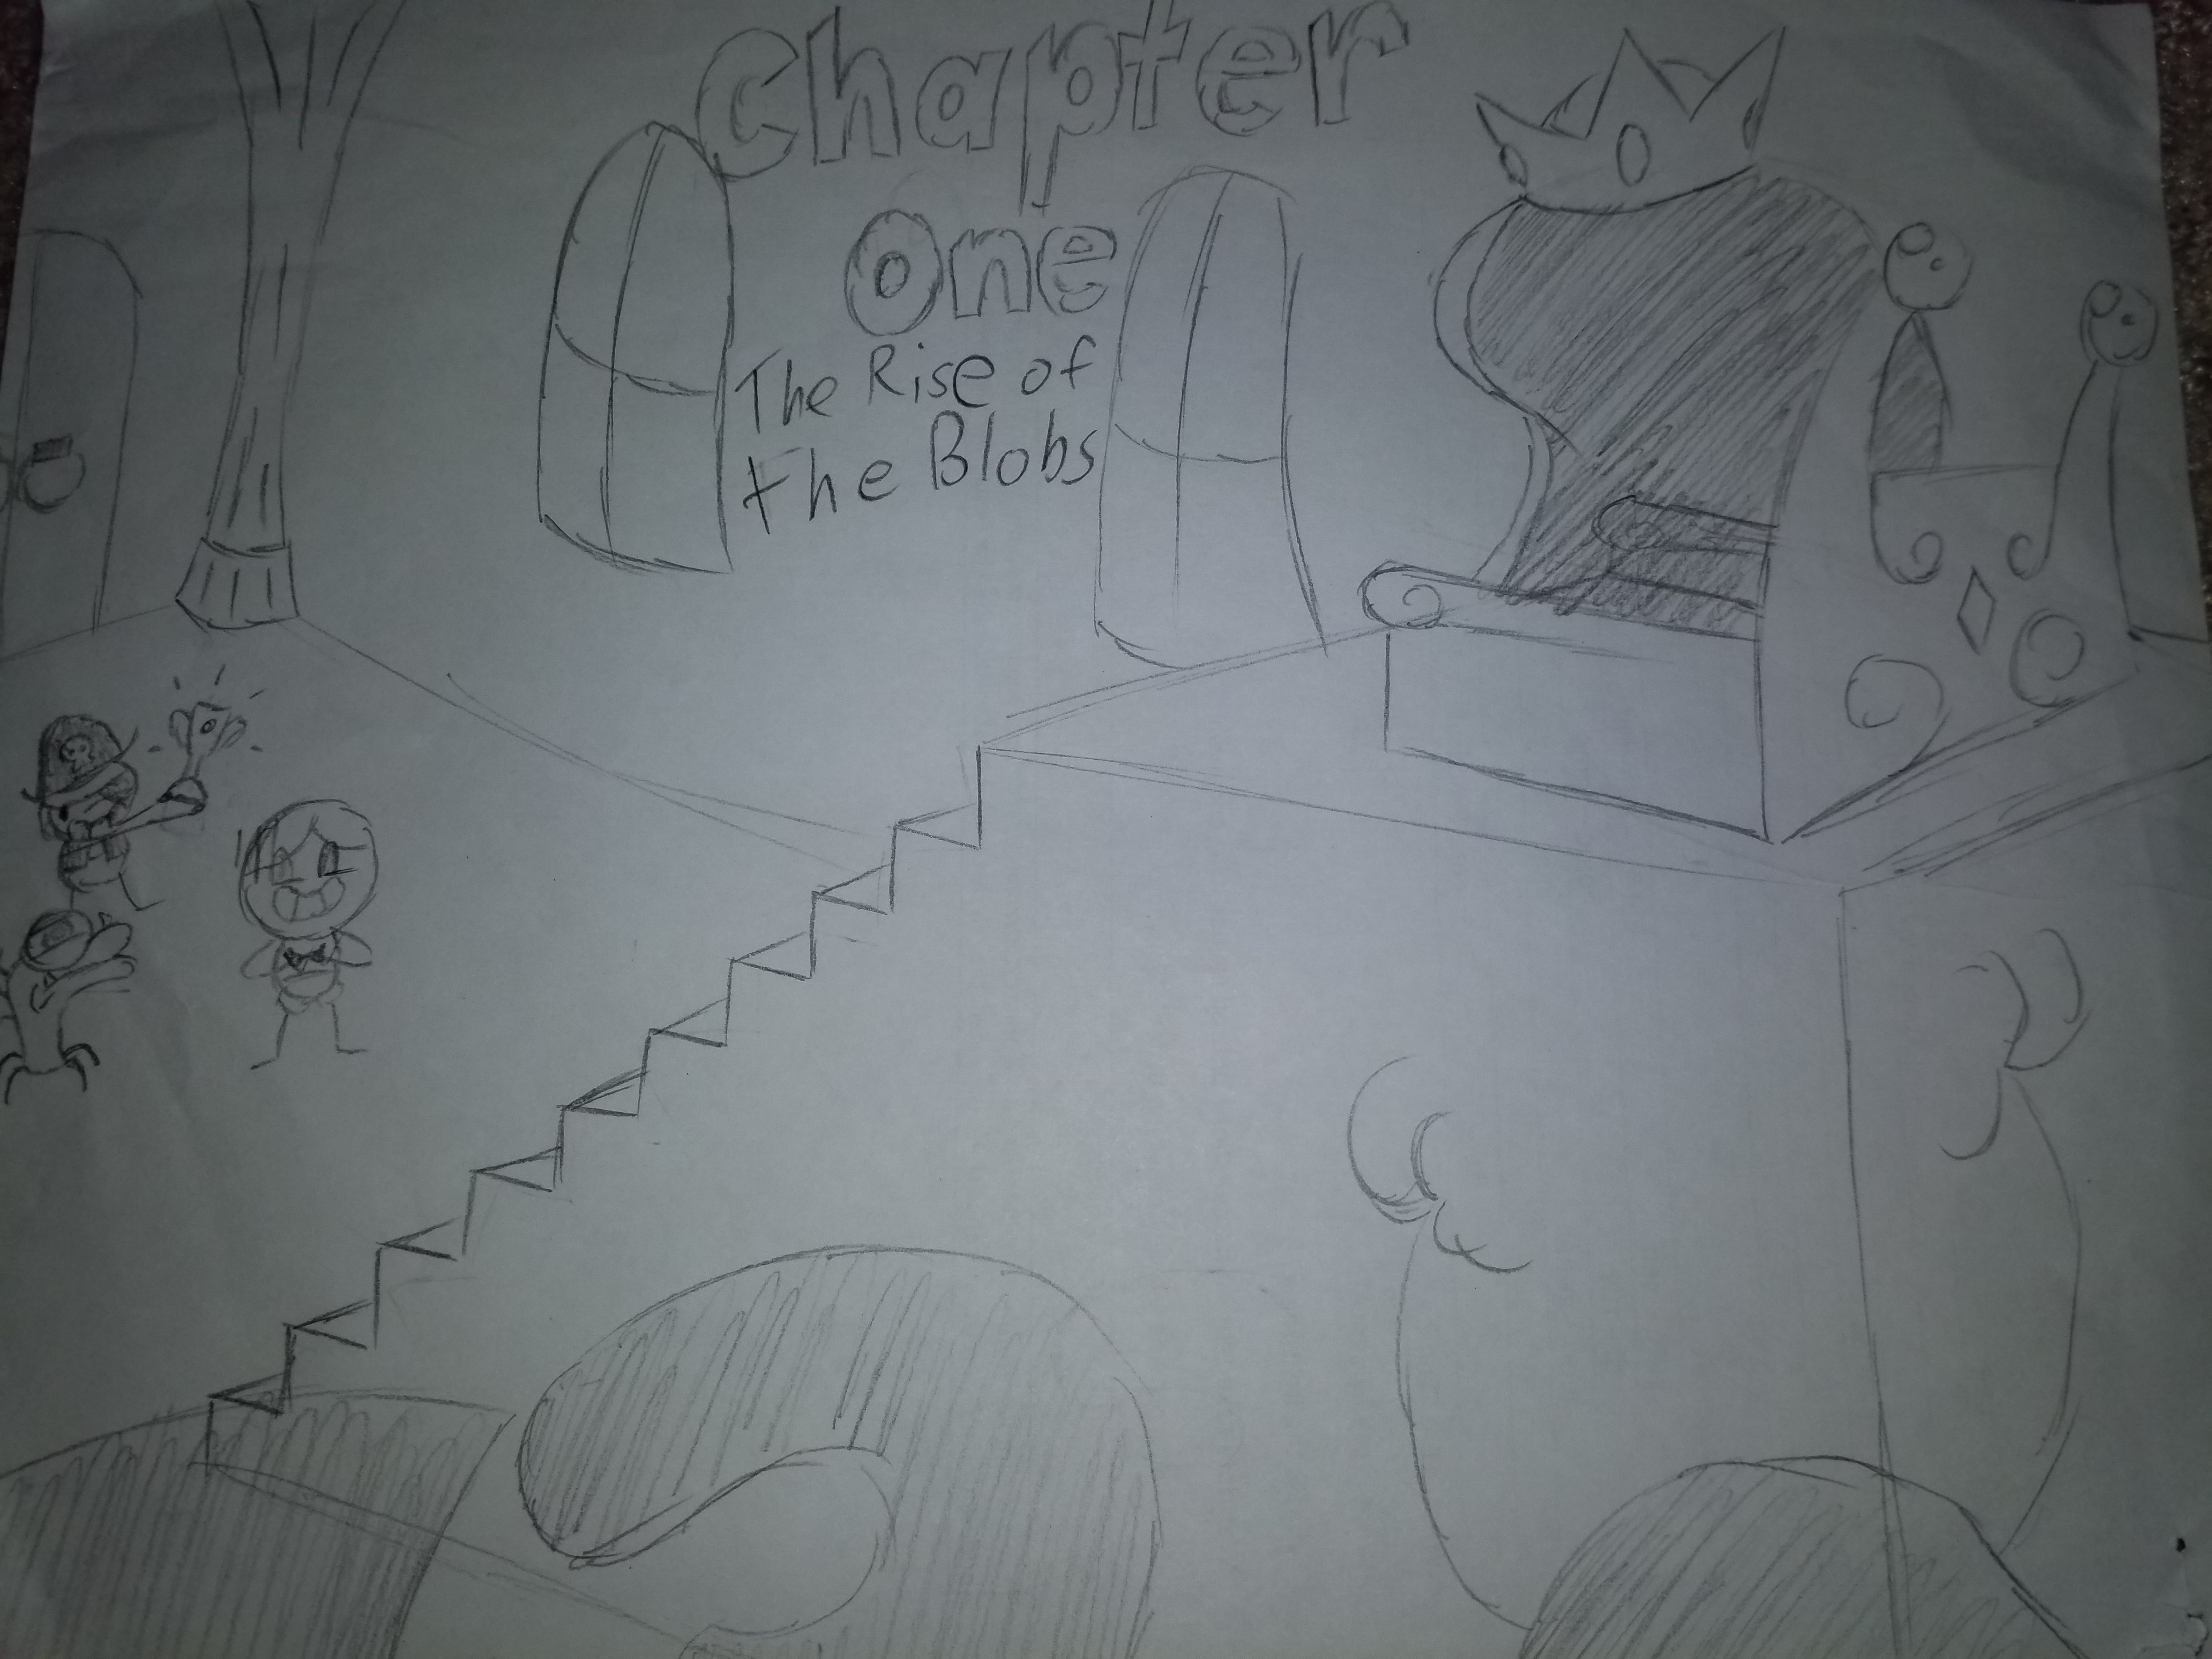 Chapter
One
The Rise of
the Blobs